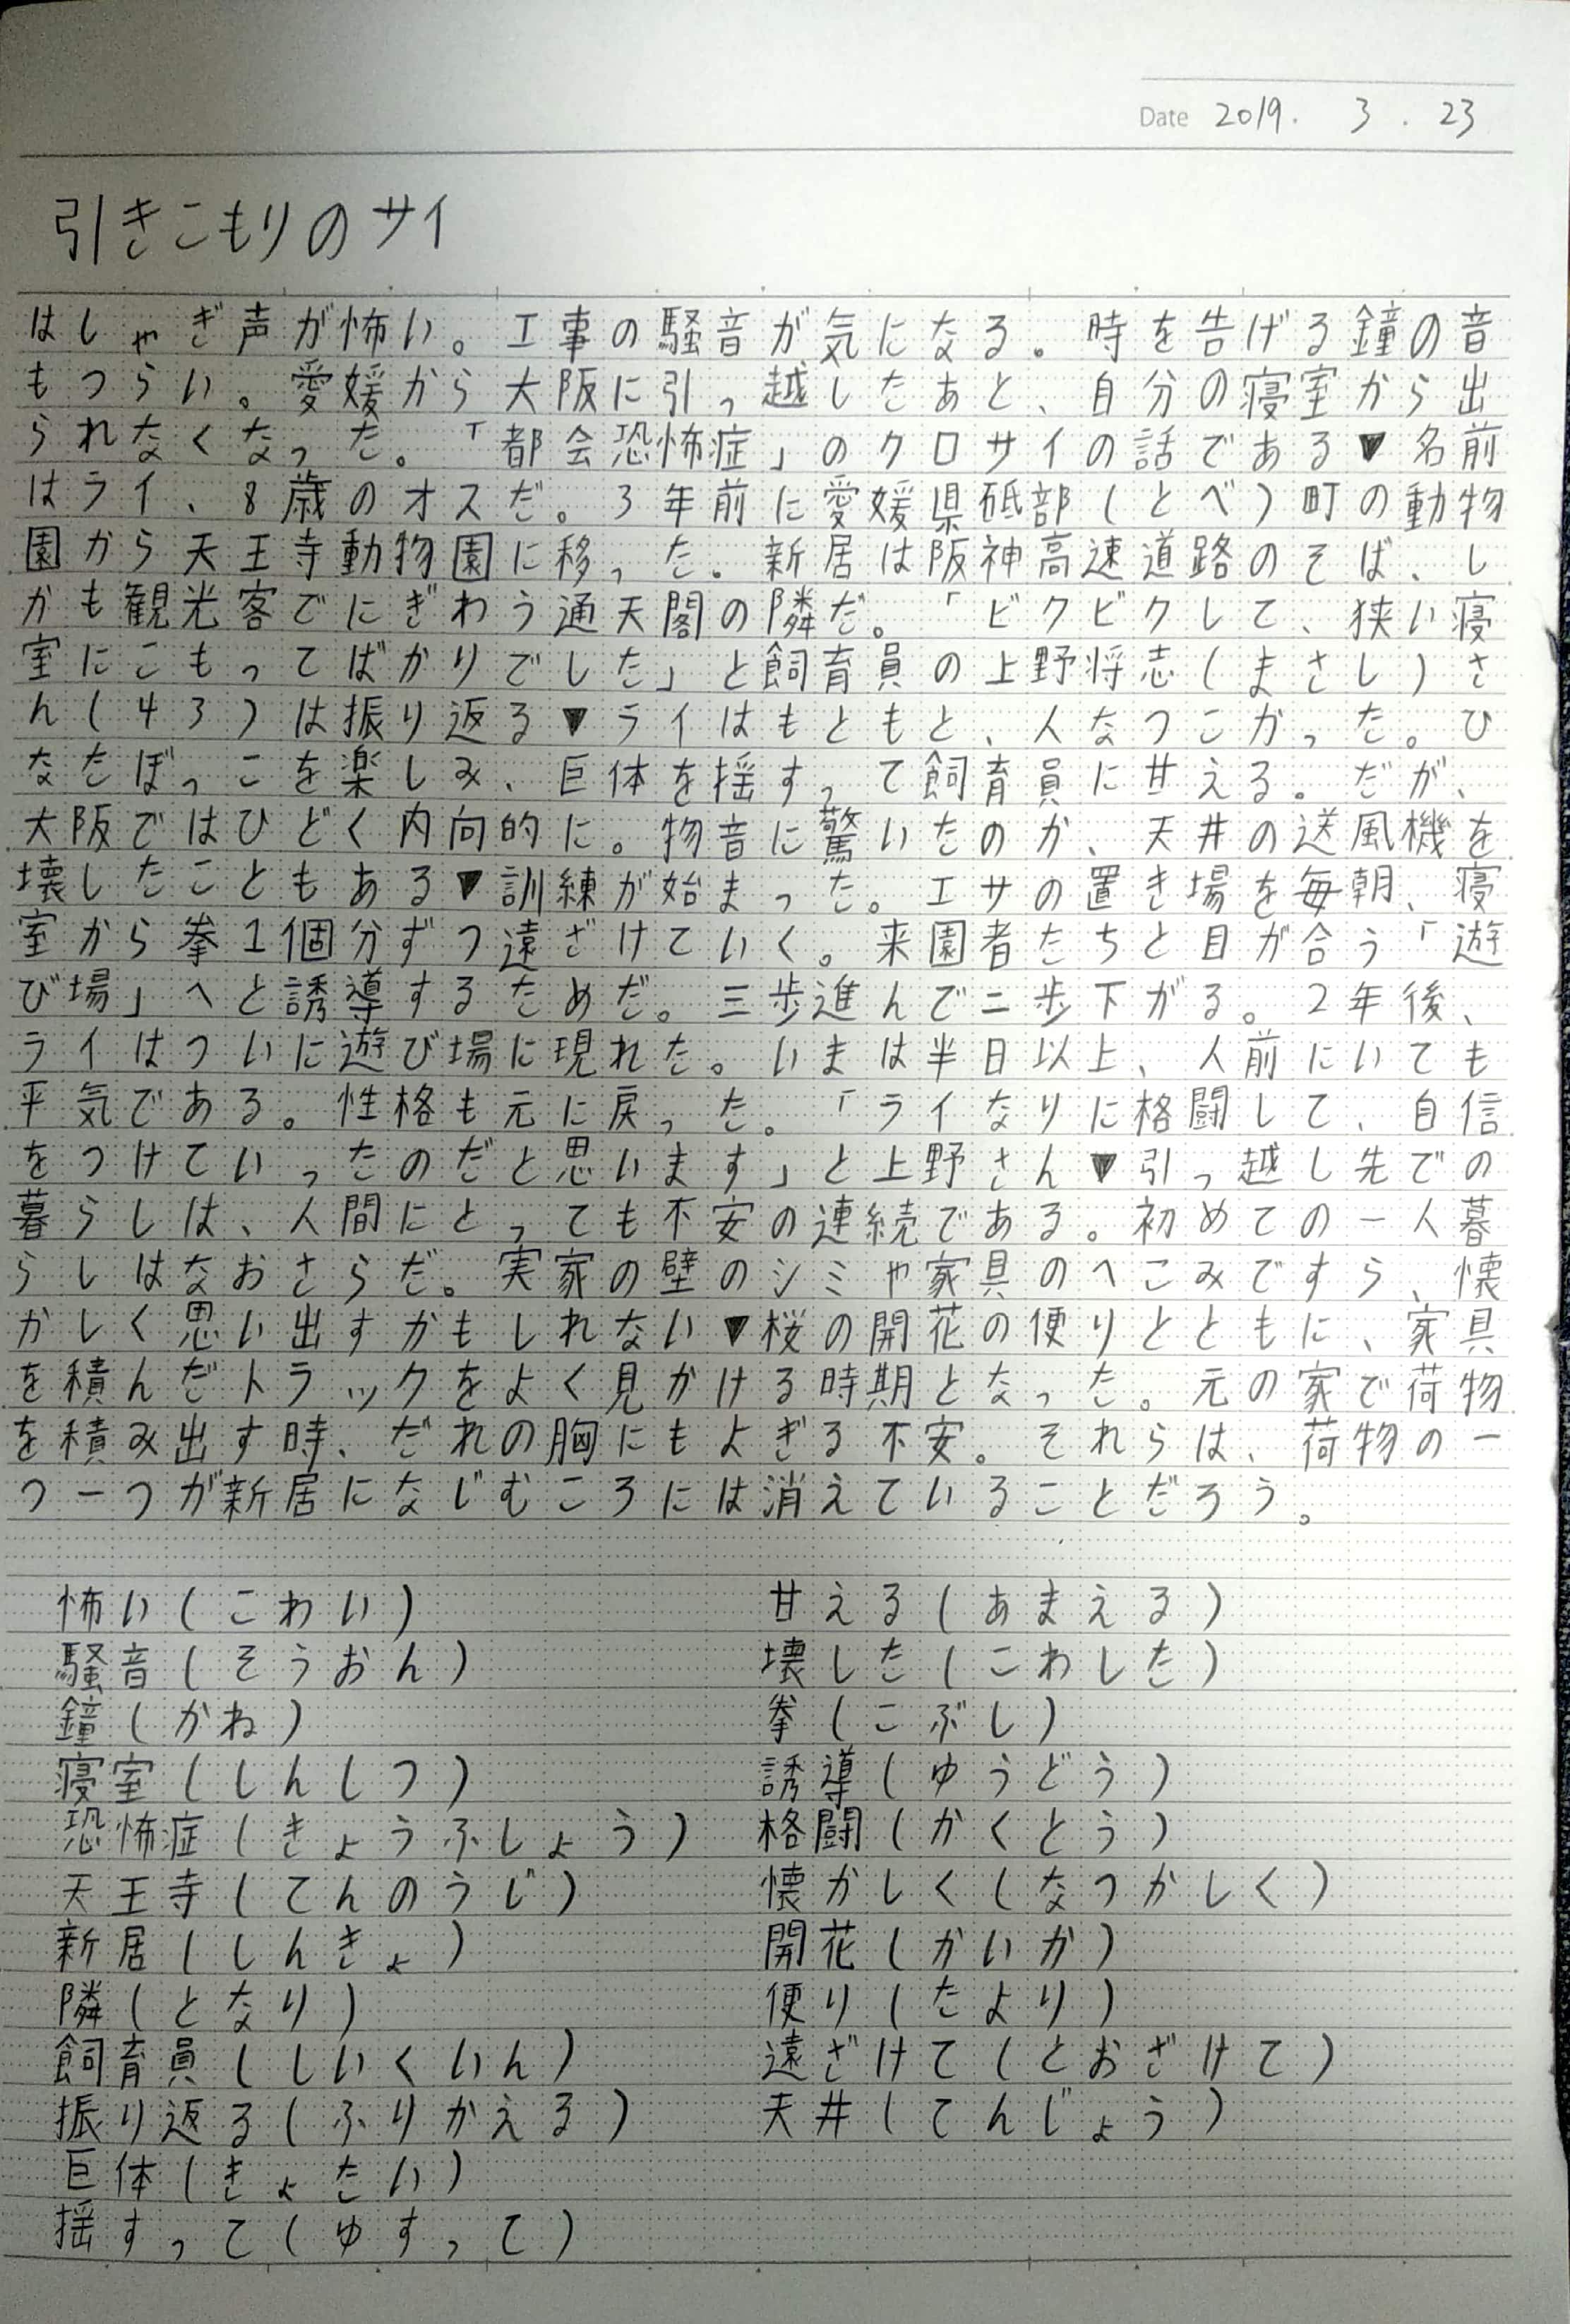 Date 2019. 3. 23
引きこもりのサイ
はしゃぎ声が怖い。工事の騒音が気になる。時を告げる鐘の音
もつらい。愛媛から大阪に引っ越したあと、自分の寝室から出
られなくなった。「都会恐怖症」のクロサイの話である▼名前
はライ、8歳のオスだ。3年前に愛媛県砥部(とべ)町の動物
園から天王寺動物園に移った。新居は阪神高速道路のそば、し
かも観光客でにぎわう通天閣の隣だ。「ビクビクして、狭い寝
室にこもってばかりでした」と飼育員の上野将志(まさし)さ
ん(43)は振り返る▼ライはもともと、人なつこかった。ひ
なたぼっこを楽しみ、巨体を揺すって飼育員に甘える。だが、
大阪ではひどく内向的に。物音に驚いたのか、天井の送風機を
壊したこともある▼訓練が始まった。エサの置き場を毎朝、寝
室から拳1個分ずつ遠ざけていく。来園者たちと目が合う「遊
び場」へと誘導するためだ。三歩進んで二歩下がる。2年後、
ライはついに遊び場に現れた。いまは半日以上、人前にいても
平気である。性格も元に戻った。「ライなりに格闘して、自信
をつけていったのだと思います」と上野さん▼引っ越し先での
暮らしは、人間にとっても不安の連続である。初めての一人暮
らしはなおさらだ。実家の壁のシミや家具のへこみですら、懐
かしく思い出すかもしれない▼桜の開花の便りとともに、家具
を積んだトラックをよく見かける時期となった。元の家で荷物
を積み出す時、だれの胸にもよぎる不安。それらは、荷物の一
つ一つが新居になじむころには消えていることだろう。
怖い(こわい)
騒音(そうおん)
鐘(かね)
寝室(しんしつ)
恐怖症(きょうふしょう)
天王寺(てんのうじ)
新居(しんきょ)
隣(となり)
飼育員(しいくいん)
振り返る(ふりかえる)
巨体(きょたい)
揺すって(ゆすって)
甘える(あまえる)
壊した(こわした)
拳(こぶし)
誘導(ゆうどう)
格闘(かくとう)
懐かしく(なつかしく)
開花(かいか)
便り(たより)
遠ざけて(とおざけて)
天井(てんじょう)